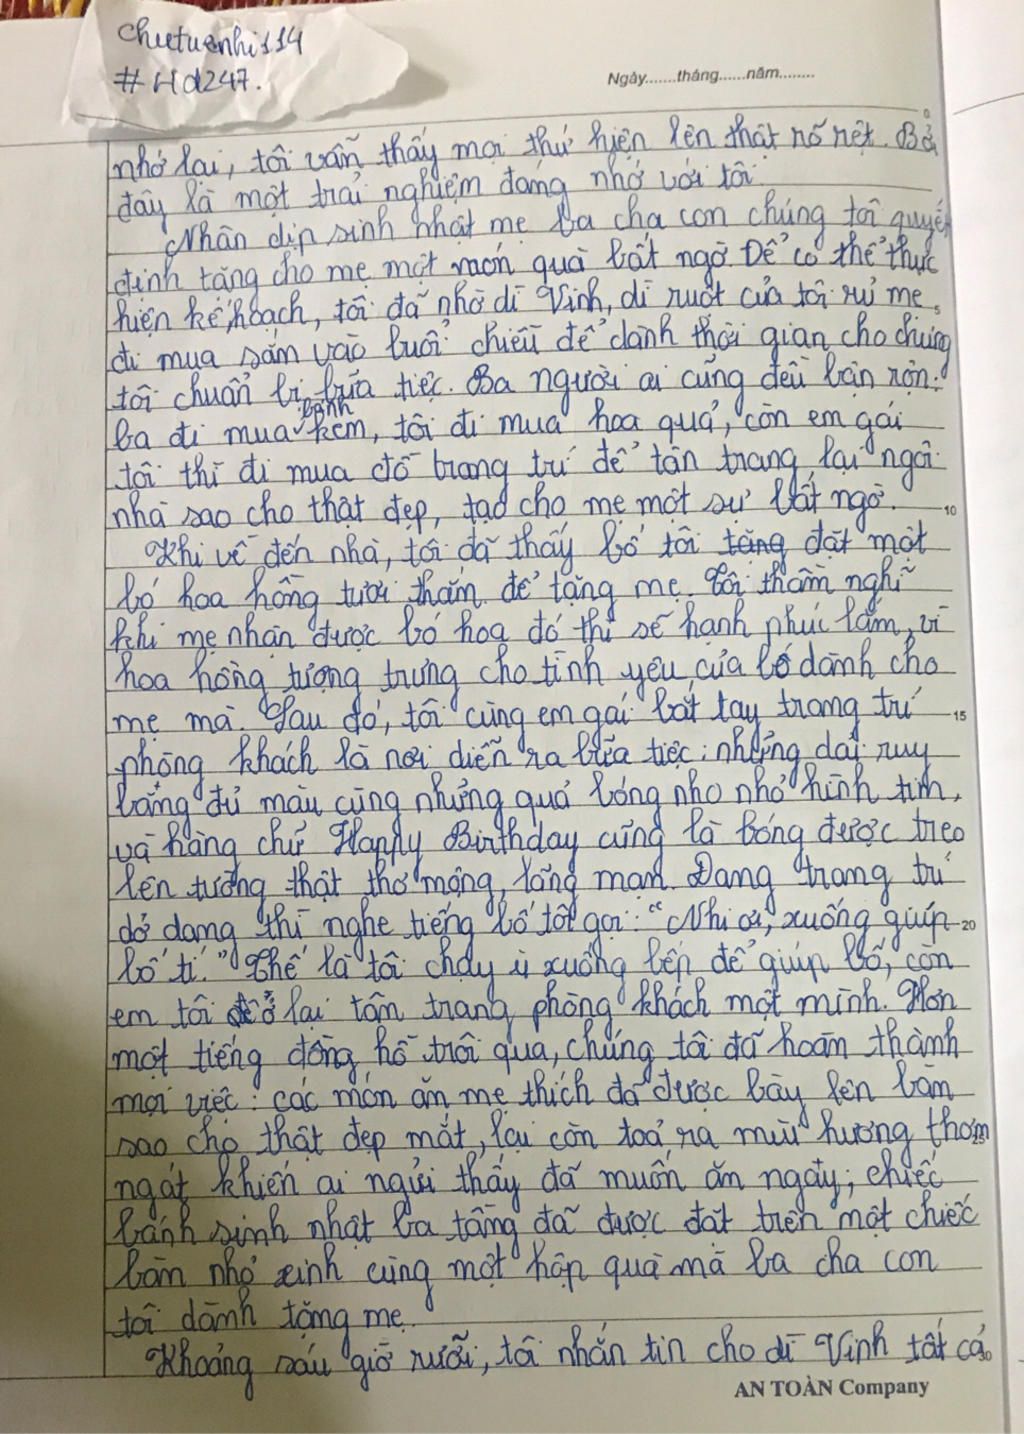 chutuenhi114
#Hd247.
Ngày.......tháng......năm........
nhớ lại, tôi vẫn thấy mọi thứ hiện lên thật rõ rệt. Bởi
đây là một trải nghiệm đáng nhớ với tôi.
Nhân dịp sinh nhật mẹ ba cha con chúng tôi quyết
định tặng cho mẹ một món quà bất ngờ. Để có thể thực
hiện kế hoạch, tôi đã nhờ dì Vinh, dì ruột của tôi rủ mẹ
đi mua sắm vào buổi chiều để dành thời gian cho chúng
tôi chuẩn bị bữa tiệc. Ba người ai cũng đều bận rộn:
ba đi mua bánh kem, tôi đi mua hoa quả, còn em gái
tôi thì đi mua đồ trang trí để tân trang lại ngôi
nhà sao cho thật đẹp, tạo cho mẹ một sự bất ngờ. 10
Khi về đến nhà, tôi đã thấy bố tôi tặng đặt một
bó hoa hồng tươi thắm để tặng mẹ. Tôi thầm nghĩ
khi mẹ nhận được bó hoa đó thì sẽ hạnh phúc lắm, vì
hoa hồng tượng trưng cho tình yêu của bố dành cho
mẹ mà. Sau đó, tôi cùng em gái bắt tay trang trí 15
phòng khách là nơi diễn ra bữa tiệc: những dải ruy
băng đủ màu cùng những quả bóng nho nhỏ hình tim,
và hàng chữ Happy Birthday cũng là bóng được treo
lên tường thật thơ mộng, lãng mạn. Đang trang trí
dở dang thì nghe tiếng bố tôi gọi: "Nhi ơi, xuống giúp 20
bố tí." Thế là tôi chạy ù xuống bếp để giúp bố, còn
em tôi ở lại tân trang phòng khách một mình. Hơn
một tiếng đồng hồ trôi qua, chúng tôi đã hoàn thành
mọi việc: các món ăn mẹ thích đã được bày lên bàn
sao cho thật đẹp mắt, lại còn toả ra mùi hương thơm 25
ngát khiến ai ngửi thấy đã muốn ăn ngay; chiếc
bánh sinh nhật ba tầng đã được đặt trên một chiếc
bàn nhỏ xinh cùng một hộp quà mà ba cha con
tôi dành tặng mẹ.
Khoảng sáu giờ rưỡi, tôi nhắn tin cho dì Vinh tất cả 30
AN TOÀN Company